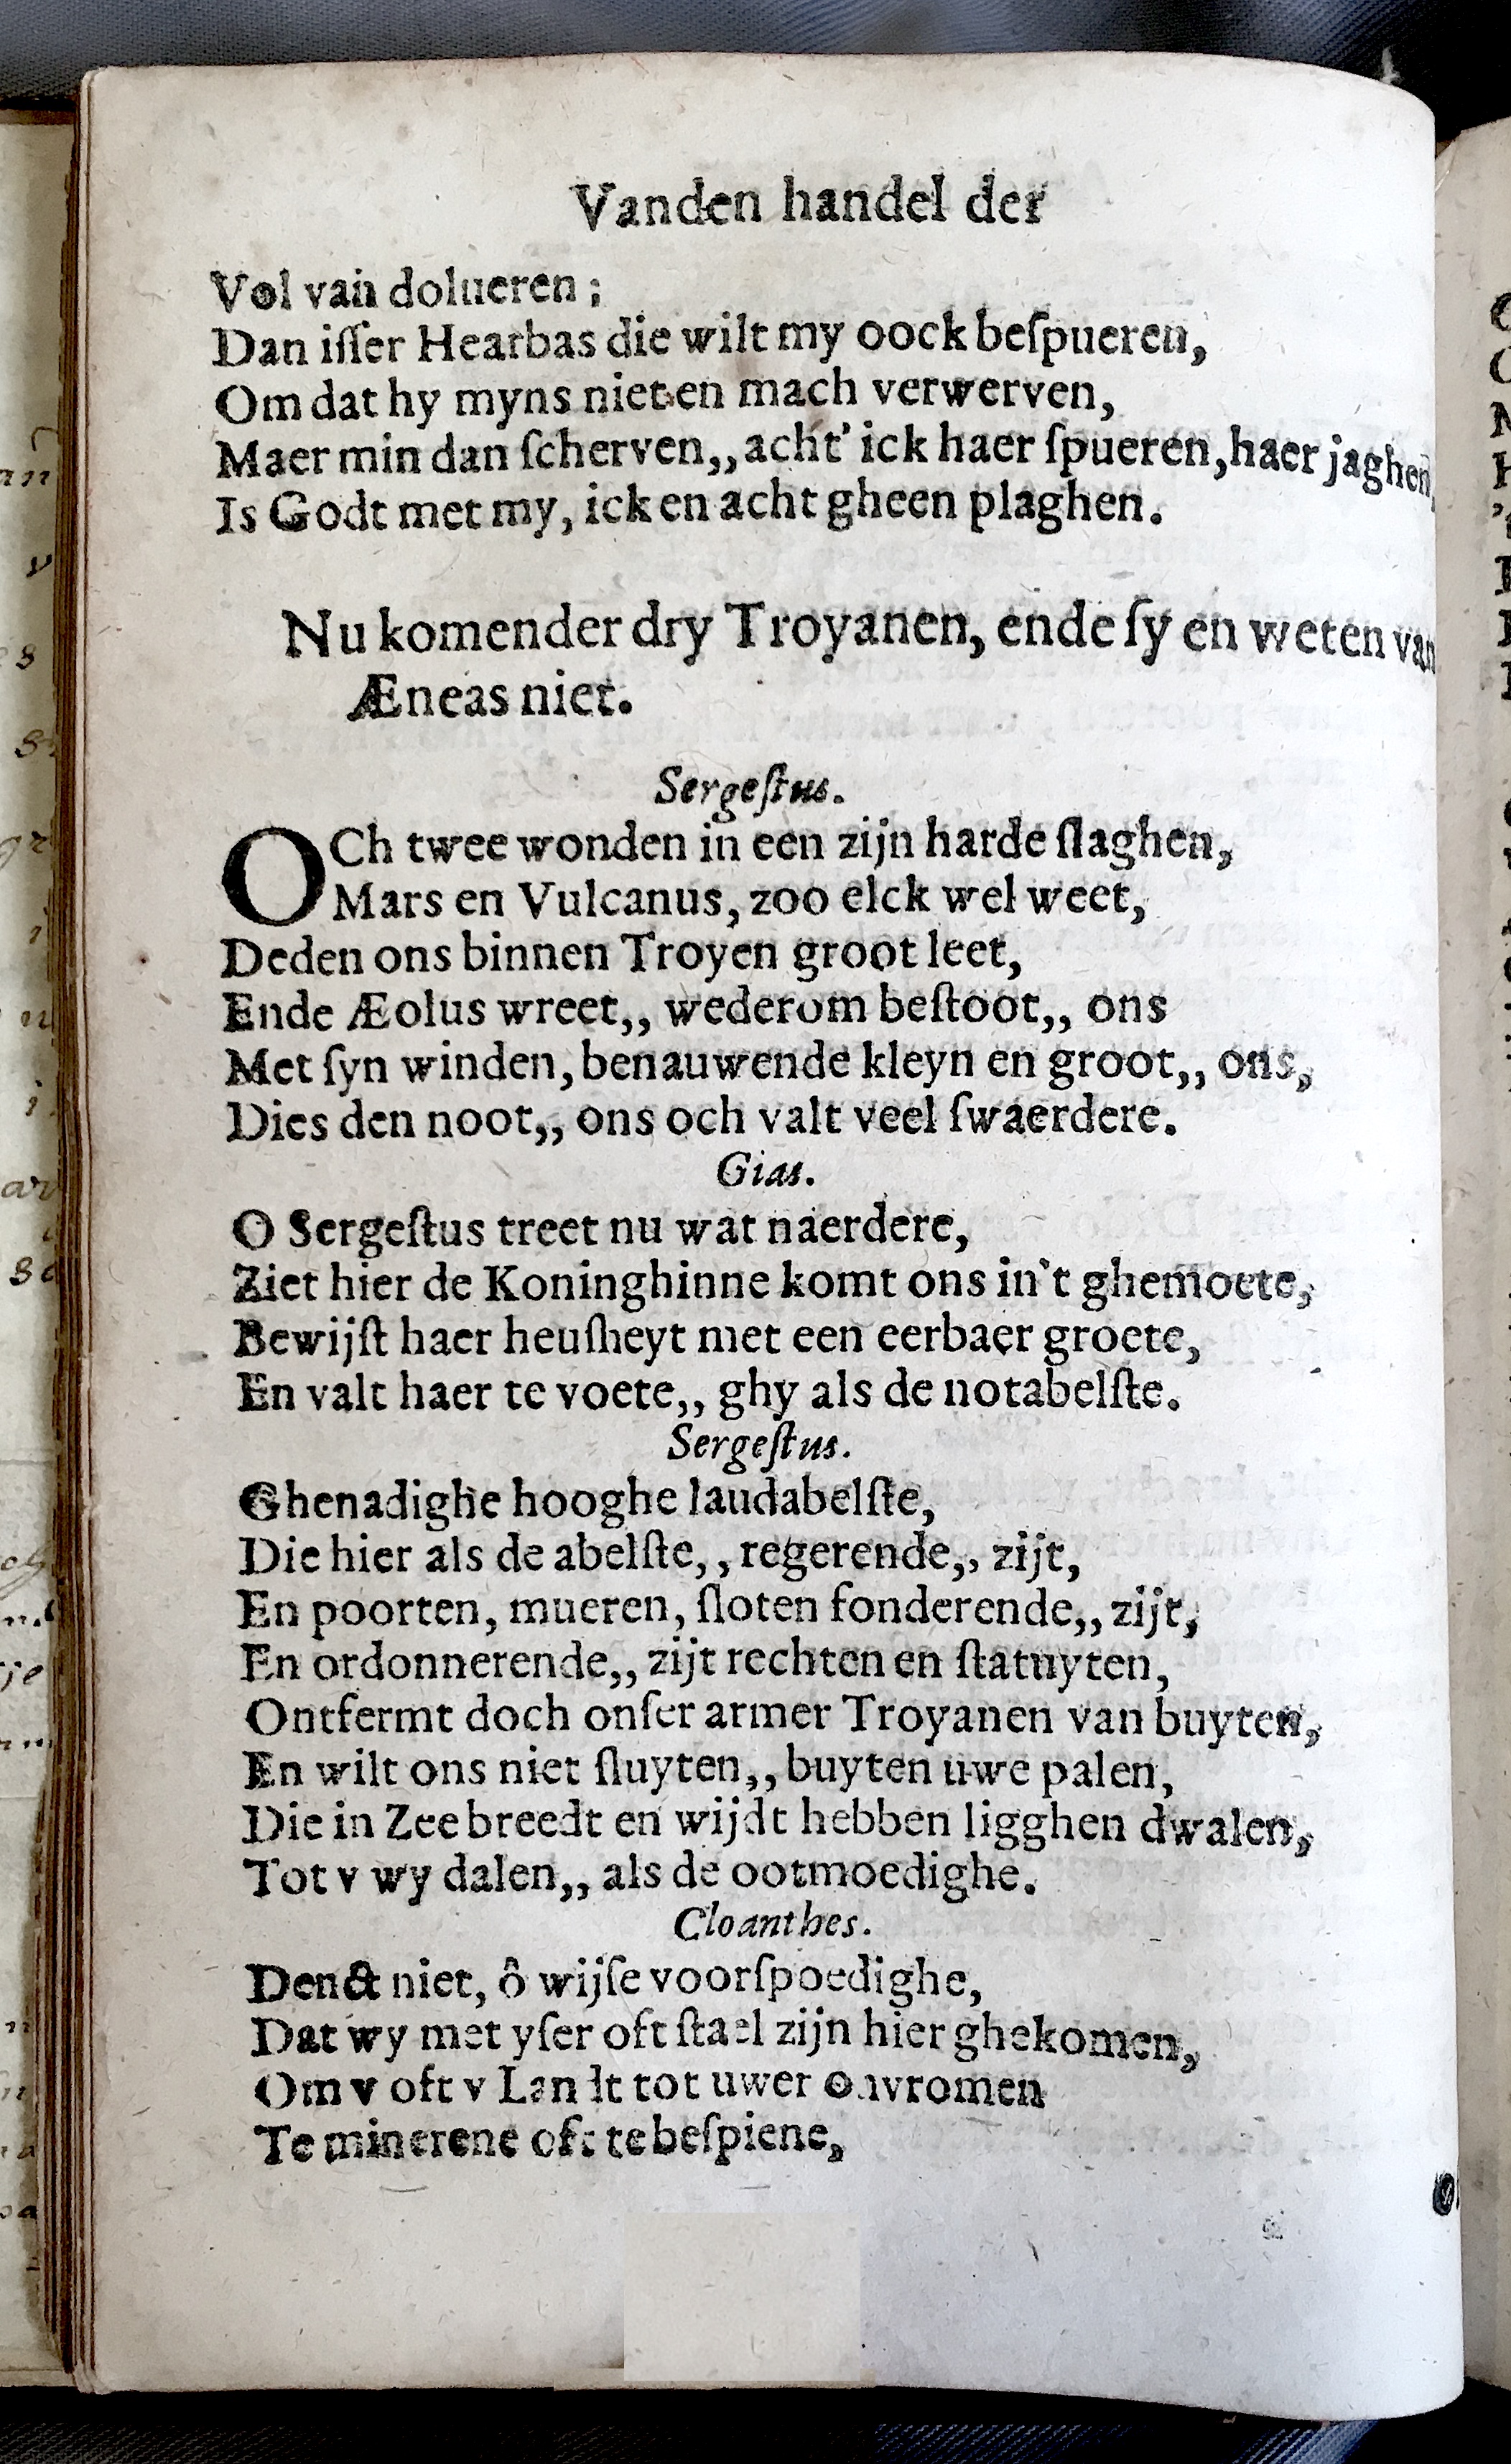 Vanden handel der
Vol van dolueren ;
Dan iſſer Hearbas die wilt my oock beſpueren,
Om dat hy myns niet en mach verwerven,
Maer min dan ſcherven,, acht' ick haer ſpueren, haer jaghen,
Is Godt met my, ick en acht gheen plaghen.
Nu komender dry Troyanen, ende ſy en weten van
Æneas niet.
Sergeſtus.
OCh twee wonden in een zijn harde ſlaghen,
Mars en Vulcanus, zoo elck wel weet,
Deden ons binnen Troyen groot leet,
Ende Æolus wreet,, wederom beſtoot,, ons
Met ſyn winden, benauwende kleyn en groot,, ons,
Dies den noot,, ons och valt veel ſwaerdere.
Gias.
O Sergeſtus treet nu wat naerdere,
Ziet hier de Koninghinne komt ons in't ghemoete,
Bewijſt haer heuſheyt met een eerbaer groete,
En valt haer te voete,, ghy als de notabelſte.
Sergeſtus.
Ghenadighe hooghe laudabelſte,
Die hier als de abelſte,, regerende,, zijt,
En poorten, mueren, ſloten fonderende,, zijt,
En ordonnerende,, zijt rechten en ſtatuyten,
Ontfermt doch onſer armer Troyanen van buyten,
En wilt ons niet ſluyten,, buyten uwe palen,
Die in Zee breedt en wijdt hebben ligghen dwalen,
Tot v wy dalen,, als de ootmoedighe.
Cloanthes.
Denct niet, ô wijſe voorſpoedighe,
Dat wy met yſer oft ſtael zijn hier ghekomen,
Om v oft v Landt tot uwer onvromen
Te minerene oft te beſpiene,